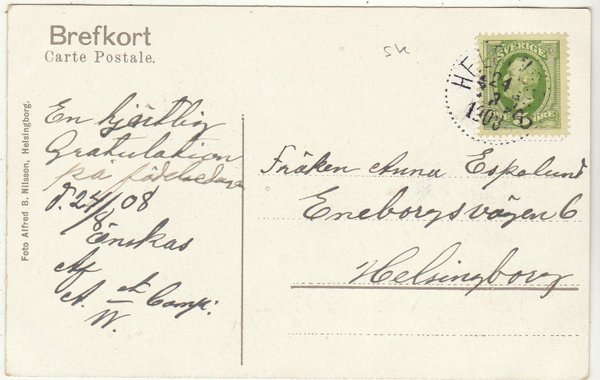 Brefkort
Carte Postale.
SVERIGE
ÖRE
24
1908
En hjärtlig
Gratulation
på födelsedagen
d. 24/8 08
Önskas
Af
A. et Comp:
W.
Fröken Anna Espelund
Eneborgsvägen 6
Helsingborg
Foto Alfred B. Nilsson, Helsingborg.